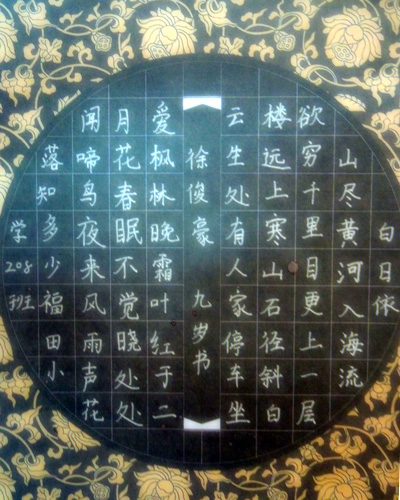 白日依
山尽黄河入海流
欲穷千里目更上一层
楼远上寒山石径斜白
云生处有人家停车坐
徐俊豪 九岁书
爱枫林晚霜叶红于二
月花春眠不觉晓处处
闻啼鸟夜来风雨声花
落知多少福田小
学208班